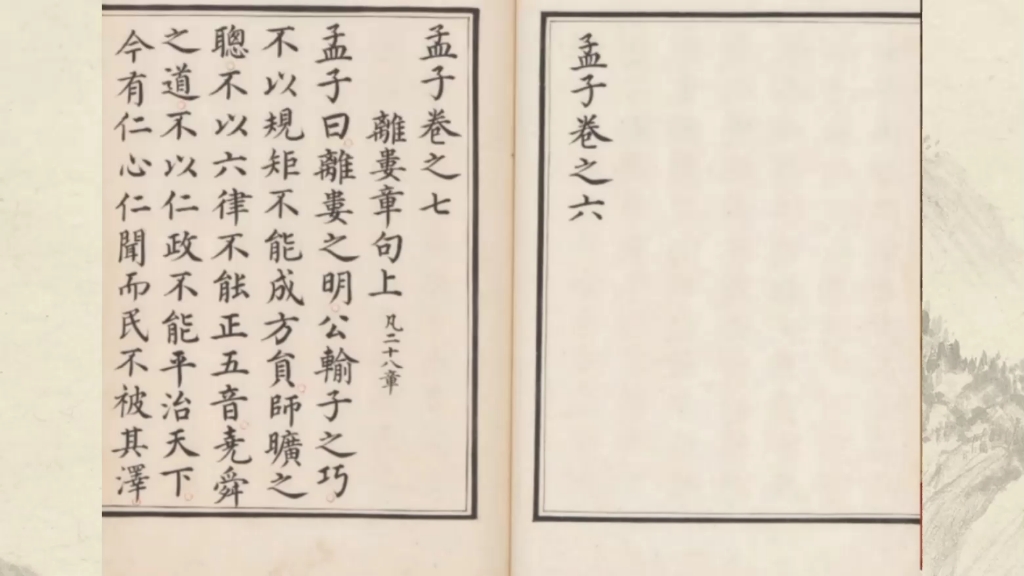 孟子卷之六
孟子卷之七
離婁章句上 凡二十八章
孟子曰離婁之明公輸子之巧
不以規矩不能成方負師曠之
聰不以六律不能正五音堯舜
之道不以仁政不能平治天下
今有仁心仁聞而民不被其澤